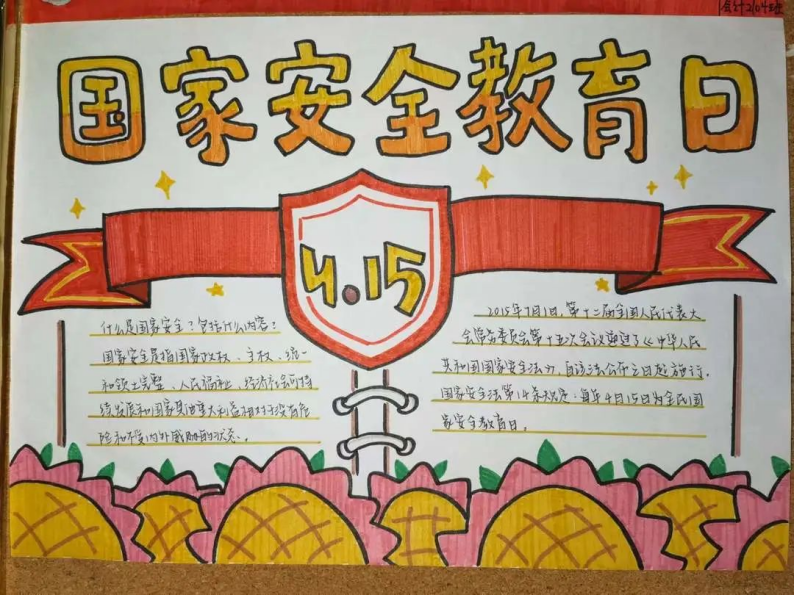 会计2104班
国家安全教育日
4.15
什么是国家安全？包括什么内容？
国家安全是指国家政权、主权、统一
和领土完整、人民福祉、经济社会可持
续发展和国家其他重大利益相对于没有危
险和不受内外威胁的状态。
2015年7月1日，第十二届全国人民代表大
会常务委员会第十五次会议通过了《中华人民
共和国国家安全法》，自该法公布之日起施行。
国家安全法第14条规定，每年4月15日为全民国
家安全教育日。